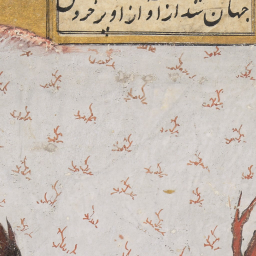 جهان شد از آواز او پر خروش